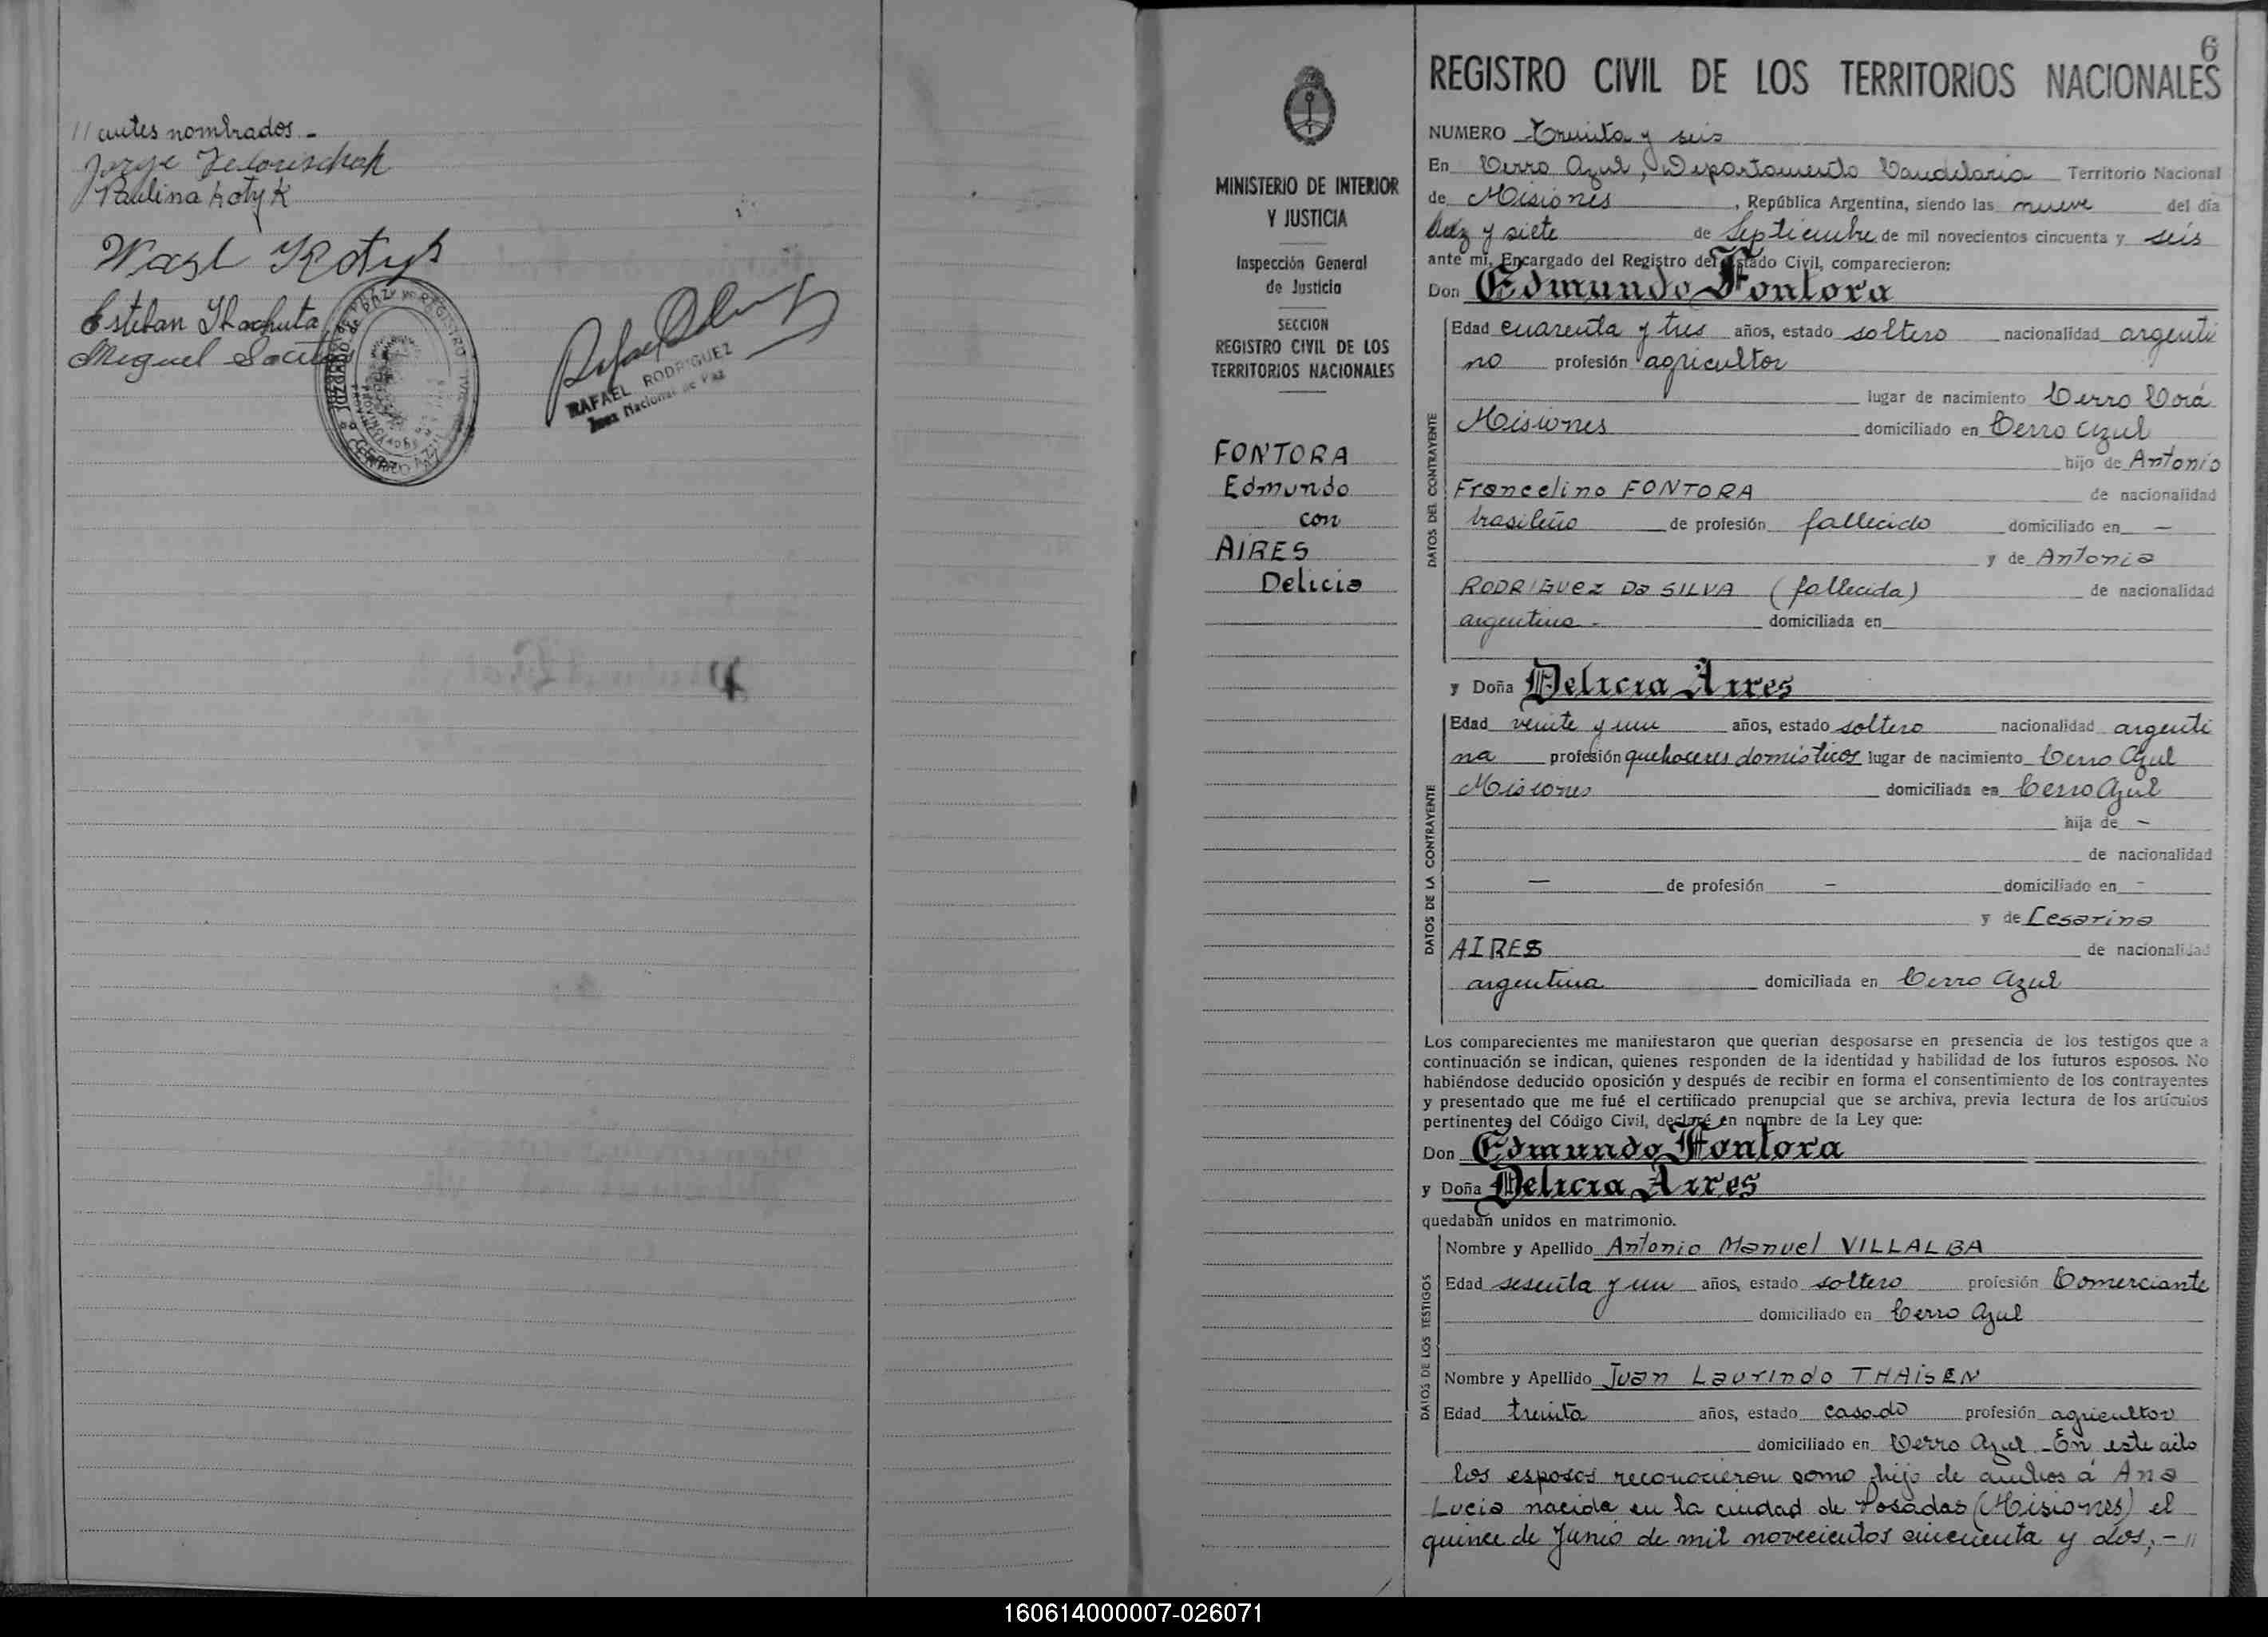 // antes nombrados.-
Paulina Kotyk
Wasl Kotyk
Esteban Thachuta
Miguel
REGISTRO
CERRO AZUL
RAFAEL RODRIGUEZ
Juez Nacional de Paz
6
MINISTERIO DE INTERIOR
Y JUSTICIA
Inspección General
de Justicia
SECCION
REGISTRO CIVIL DE LOS
TERRITORIOS NACIONALES
FONTORA
Edmundo
con
AIRES
Delicia
REGISTRO CIVIL DE LOS TERRITORIOS NACIONALES
NUMERO Treinta y seis
En Cerro Azul, Departamento Candelaria Territorio Nacional
de Misiones, República Argentina, siendo las nueve del día
diez y siete de Septiembre de mil novecientos cincuenta y seis
ante mí, Encargado del Registro del Estado Civil, comparecieron:
Don Edmundo Fontora
DATOS DEL CONTRAYENTE
Edad cuarenta y tres años, estado soltero nacionalidad argenti
no profesión agricultor
lugar de nacimiento Cerro Corá
Misiones domiciliado en Cerro Azul
hijo de Antonio
Francelino FONTORA de nacionalidad
brasileño de profesión fallecido domiciliado en —
y de Antonia
RODRIGUEZ Da SILVA (fallecida) de nacionalidad
argentina - domiciliada en
y Doña Delicia Aires
DATOS DE LA CONTRAYENTE
Edad veinte y un años, estado soltero nacionalidad argenti
na profesión quehaceres domésticos lugar de nacimiento Cerro Azul
Misiones domiciliada en Cerro Azul
hija de -
de nacionalidad
— de profesión — domiciliado en -
y de Cesarina
AIRES de nacionalidad
argentina domiciliada en Cerro Azul
Los comparecientes me manifestaron que querían desposarse en presencia de los testigos que a
continuación se indican, quienes responden de la identidad y habilidad de los futuros esposos. No
habiéndose deducido oposición y después de recibir en forma el consentimiento de los contrayentes
y presentado que me fué el certificado prenupcial que se archiva, previa lectura de los artículos
pertinentes del Código Civil, declaré en nombre de la Ley que:
Don Edmundo Fontora
y Doña Delicia Aires
quedaban unidos en matrimonio.
DATOS DE LOS TESTIGOS
Nombre y Apellido Antonio Manuel VILLALBA
Edad sesenta y un años, estado soltero profesión Comerciante
domiciliado en Cerro Azul
Nombre y Apellido Juan Laurindo THAISEN
Edad treinta años, estado casado profesión agricultor
domiciliado en Cerro Azul.-En este acto
los esposos reconocieron como hijo de ambos a Ana
Lucia nacida en la ciudad de Posadas (Misiones) el
quince de Junio de mil novecientos cincuenta y dos,-//
160614000007-026071